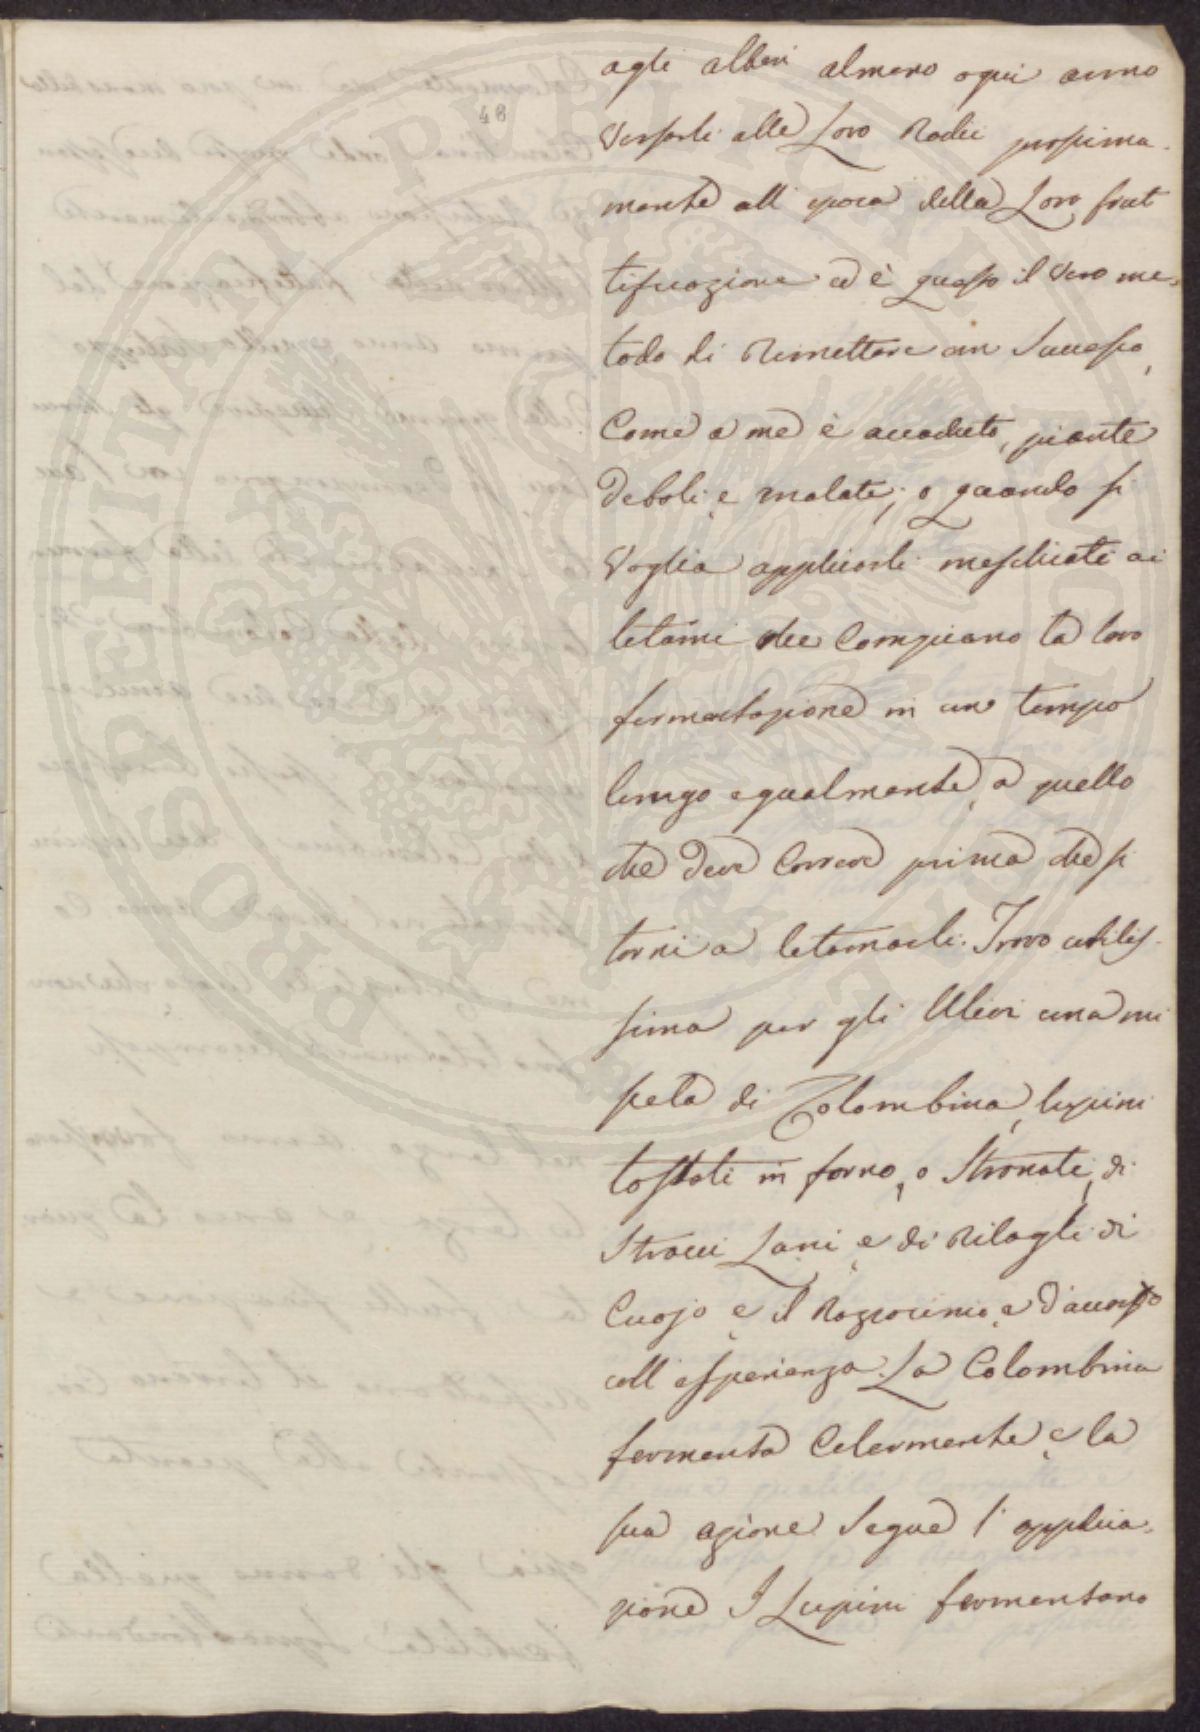 48
agli alberi almeno ogni anno
versarli alle Loro Radici prossima-
mente all epoca della Loro frut
tificazione ed è questo il vero me-
todo di Rimettere con Successo,
Come a me è accaduto, piante
deboli, e malate; o quando si
voglia applicarli meschiati ai
letami che Compiano la loro
fermentazione in un tempo
lungo egualmente, a quello
che deve Correre prima che si
torni a letamarli. Trovo utilis-
sima per gli Ulivi una mi
steta di Colombina, lupini
tostati in forno, o Stronati, di
Stracci Lani, e di Ritagli di
Cuojo, e il Raziocinio, e d'accordo
coll esperienza. La Colombina
fermenta Celermente, e la
sua azione Segue l'applica-
zione I Lupini fermentano
PROSPERITATI PVBLICAE AVGENDAE